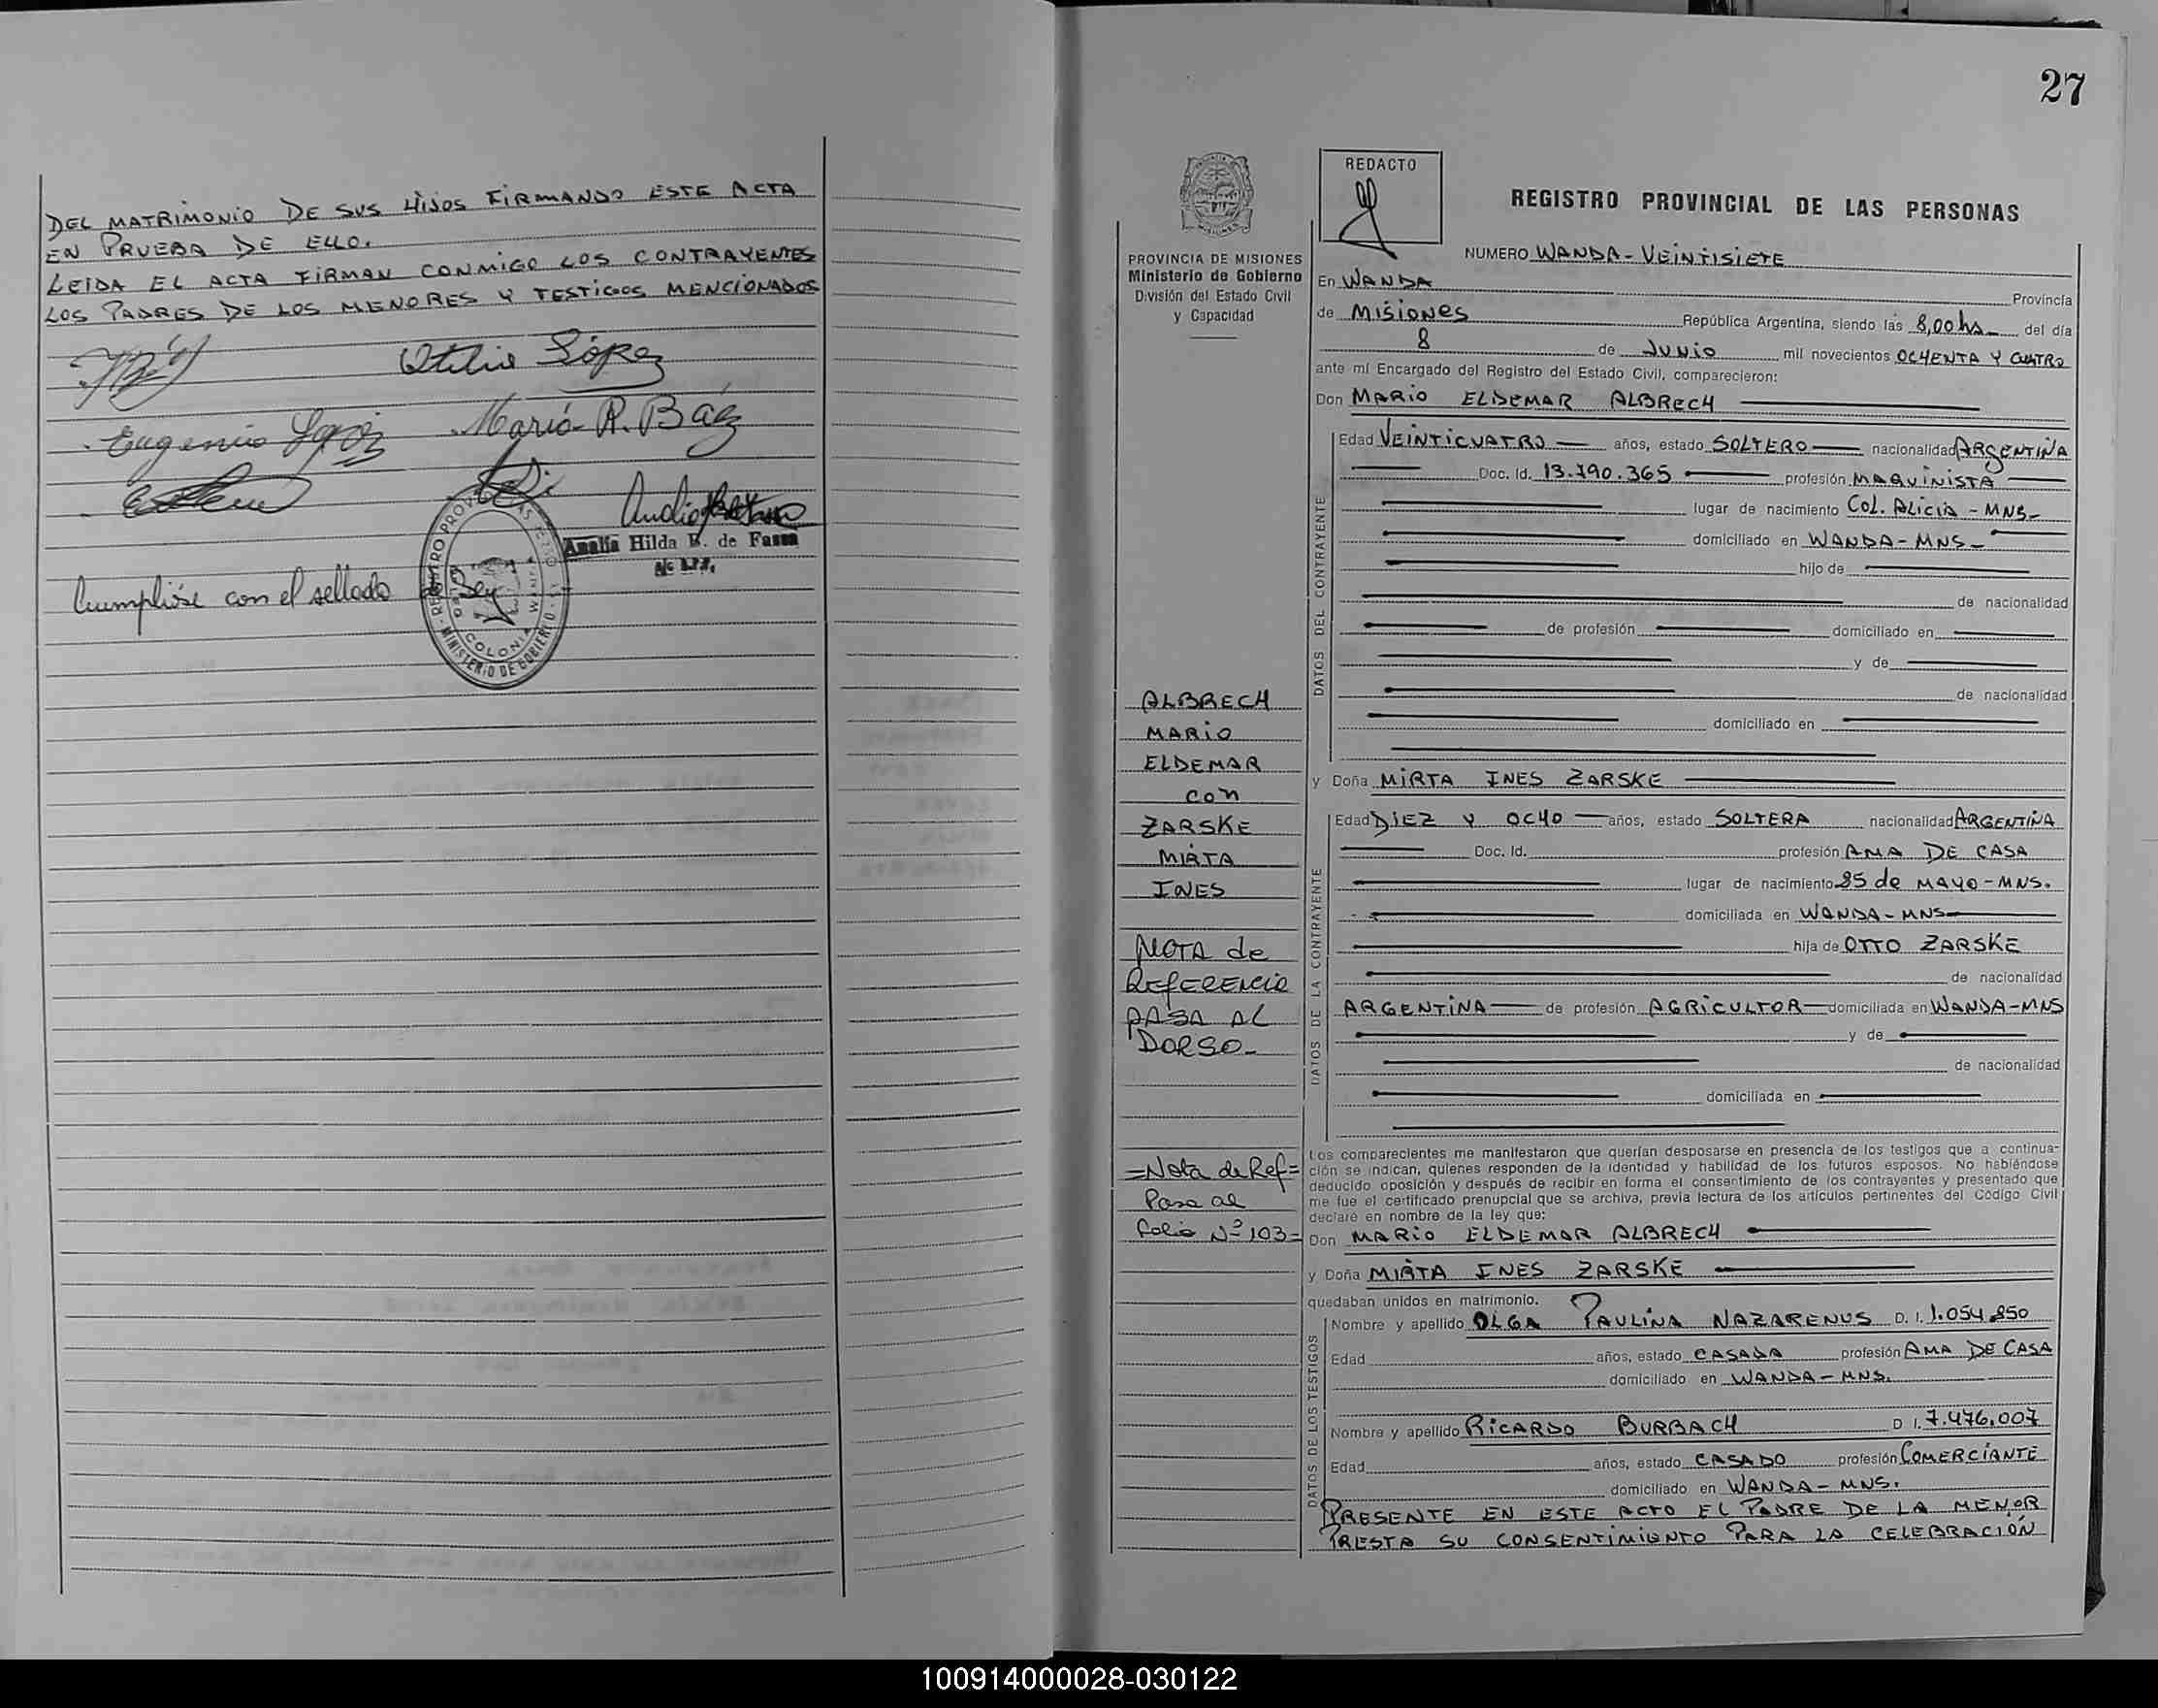 DEL MATRIMONIO DE SUS HIJOS FIRMANDO ESTE ACTA
EN PRUEBA DE ELLO.
LEIDA EL ACTA FIRMAN CONMIGO LOS CONTRAYENTES
LOS PADRES DE LOS MENORES Y TESTIGOS MENCIONADOS
Otilio López
Eugenio López Mario R. Báez
Analia Hilda B. de Fassa
Cumplióse con el sellado de Ley
REGISTRO PROVINCIAL DE LAS PERSONAS
COLONIA WANDA
MINISTERIO DE GOBIERNO
27
REDACTO
REGISTRO PROVINCIAL DE LAS PERSONAS
PROVINCIA DE MISIONES
Ministerio de Gobierno
División del Estado Civil
y Capacidad
NUMERO WANDA - VEINTISIETE
En WANDA Provincia
de MISIONES República Argentina, siendo las 8,00 hs del día
8 de JUNIO mil novecientos OCHENTA Y CUATRO
ante mí Encargado del Registro del Estado Civil, comparecieron:
Don MARIO ELDEMAR ALBRECH
DATOS DEL CONTRAYENTE
Edad VEINTICUATRO años, estado SOLTERO nacionalidad ARGENTINA
Doc. Id. 13.790.365 profesión MAQUINISTA
lugar de nacimiento COL. ALICIA - MNS-
domiciliado en WANDA - MNS-
hijo de
de nacionalidad
de profesión domiciliado en
y de
de nacionalidad
domiciliado en
ALBRECH
MARIO
ELDEMAR
con
ZARSKE
MIRTA
INES
NOTA de
REFERENCIA
PASA AL
DORSO-
=Nota de Ref=
Pasa al
folio Nº 103=
y Doña MIRTA INES ZARSKE
DATOS DE LA CONTRAYENTE
Edad DIEZ Y OCHO años, estado SOLTERA nacionalidad ARGENTINA
Doc. Id. profesión AMA DE CASA
lugar de nacimiento 25 de MAYO - MNS.
domiciliada en WANDA - MNS
hija de OTTO ZARSKE
de nacionalidad
ARGENTINA de profesión AGRICULTOR domiciliada en WANDA-MNS
y de
de nacionalidad
domiciliada en
Los comparecientes me manifestaron que querían desposarse en presencia de los testigos que a continua-
ción se indican, quienes responden de la identidad y habilidad de los futuros esposos. No habiéndose
deducido oposición y después de recibir en forma el consentimiento de los contrayentes y presentado que
me fue el certificado prenupcial que se archiva, previa lectura de los artículos pertinentes del Código Civil
declaré en nombre de la ley que:
Don MARIO ELDEMAR ALBRECH
y Doña MIRTA INES ZARSKE
quedaban unidos en matrimonio.
DATOS DE LOS TESTIGOS
Nombre y apellido OLGA PAULINA NAZARENUS D. I. 1.054.850
Edad años, estado CASADA profesión AMA DE CASA
domiciliado en WANDA - MNS.
Nombre y apellido RICARDO BURBACH D I. 7.476.007
Edad años, estado CASADO profesión COMERCIANTE
domiciliado en WANDA - MNS.
PRESENTE EN ESTE ACTO EL PADRE DE LA MENOR
PRESTA SU CONSENTIMIENTO PARA LA CELEBRACIÓN
100914000028-030122